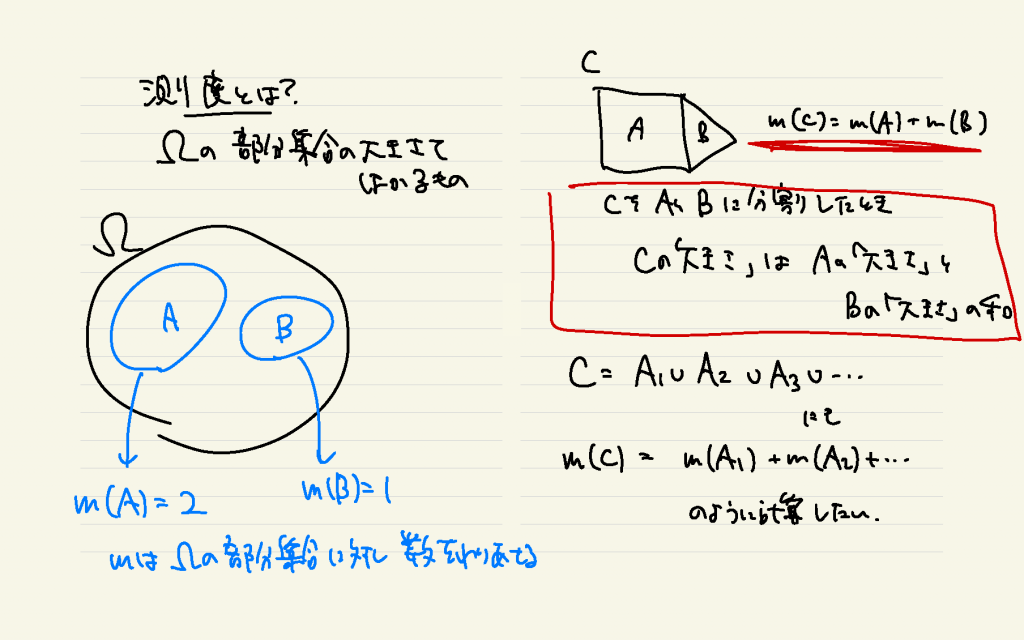 測度とは?
Ωの部分集合の大きさを
はかるもの
Ω
A
B
m(A)=2
m(B)=1
mはΩの部分集合に対し数をわりあてる
C
A
B
m(C)=m(A)+m(B)
CをAとBに分割したとき
Cの「大きさ」はAの「大きさ」と
Bの「大きさ」の和
C= A₁∪A₂∪A₃∪…
にも
m(C) = m(A₁)+m(A₂)+…
のように計算したい.